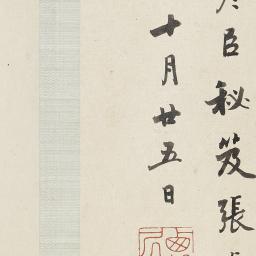 臣秘笈張
十月廿五日